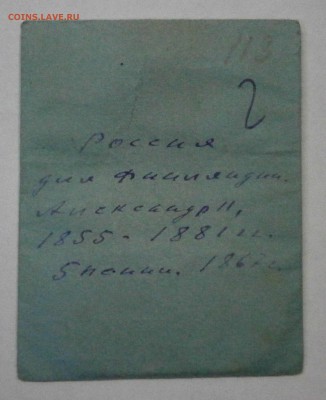 COINS.LAVE.RU
113
2
Россия
для Финляндии.
Александр II,
1855 - 1881 гг.
5 пенни.